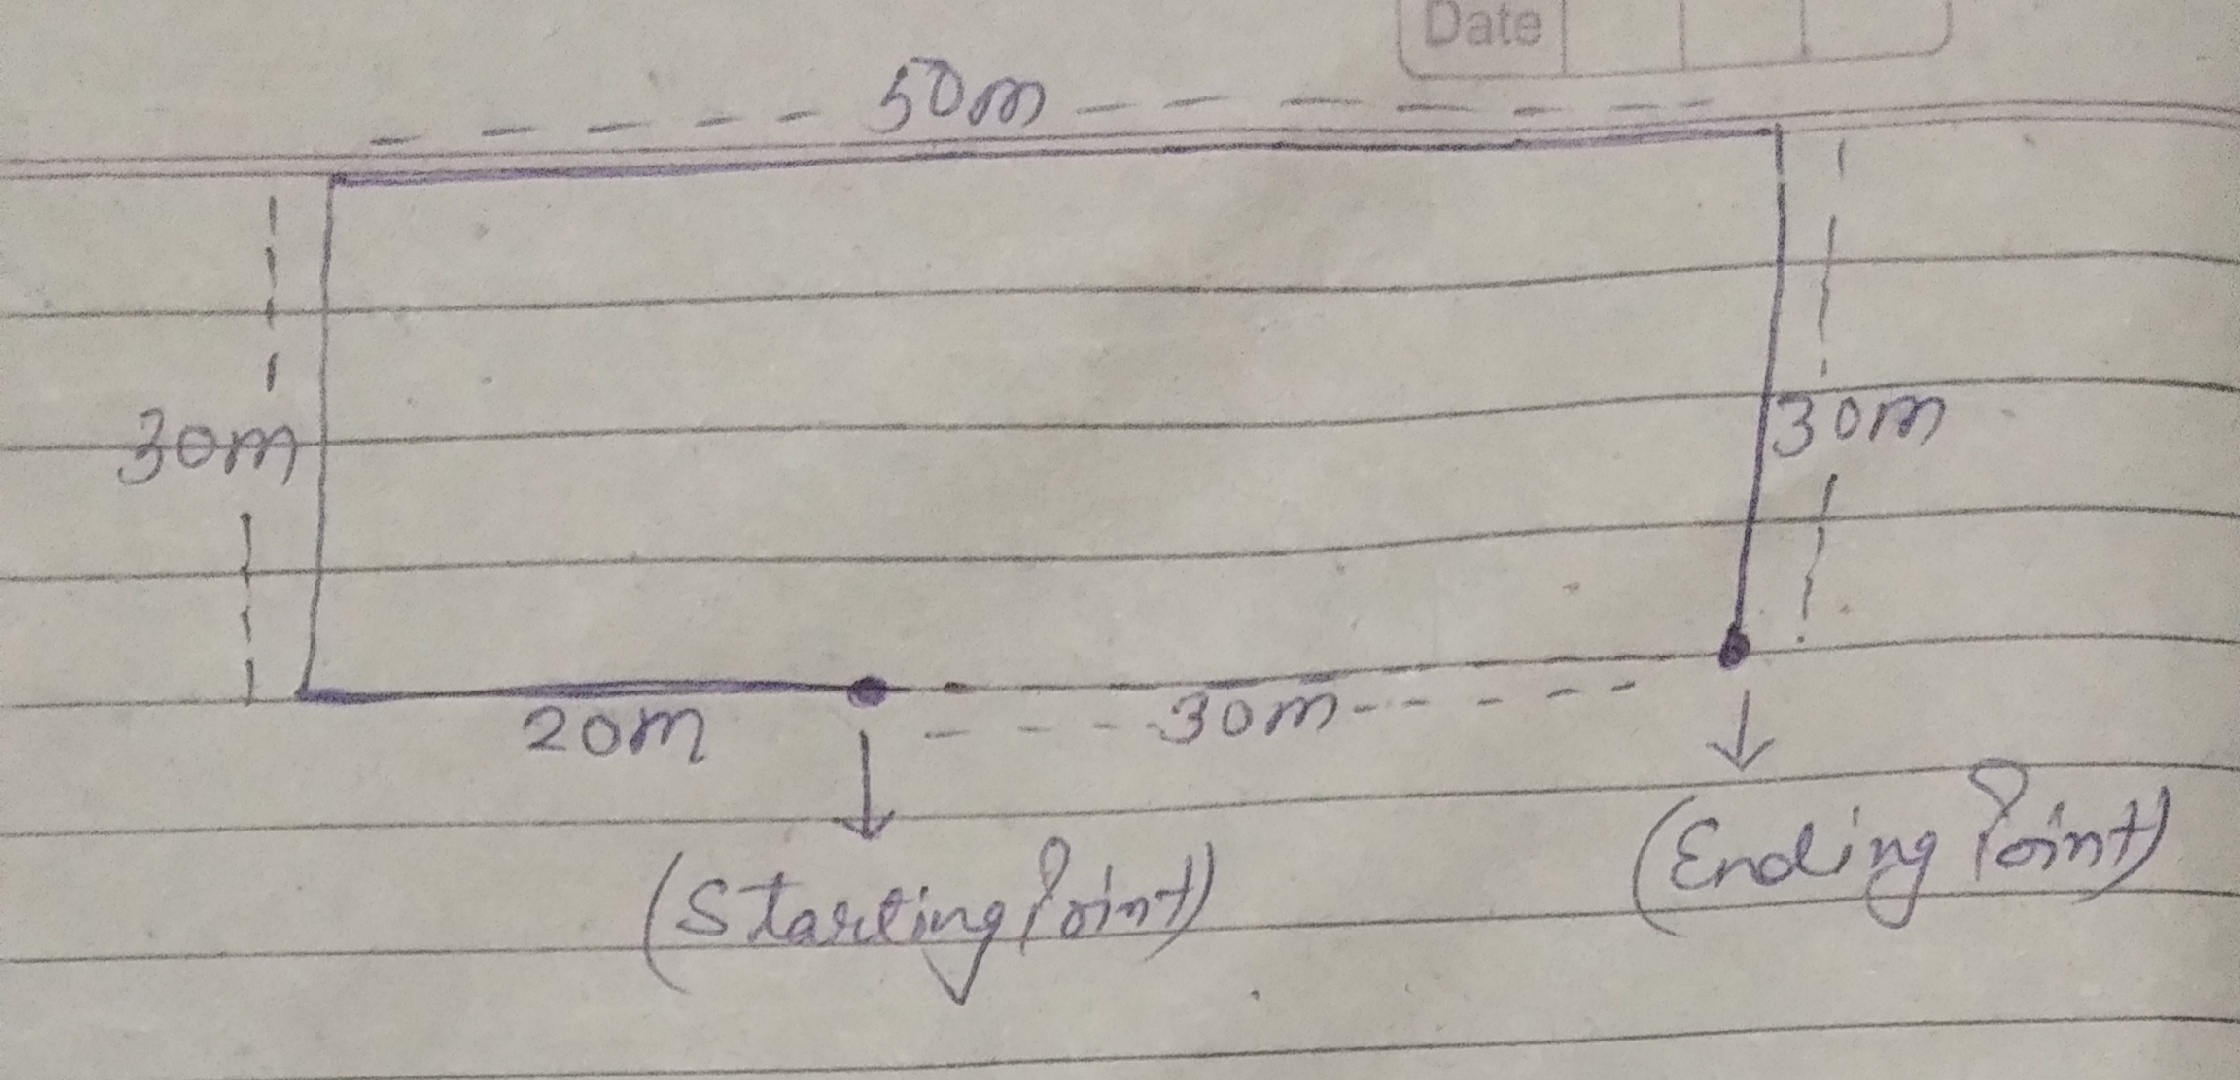 Date
50m
30m
30m
20m
30m
(Starting Point)
(Ending Point)